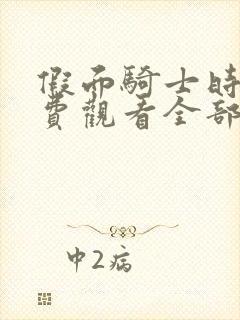 假面騎士時
費觀看全部
中2病